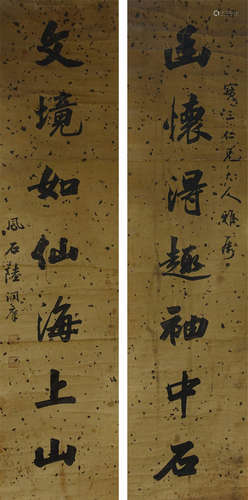 仁兄大人雅屬
幽懷得趣袖中石
文境如仙海上山
鳳石陸潤庠